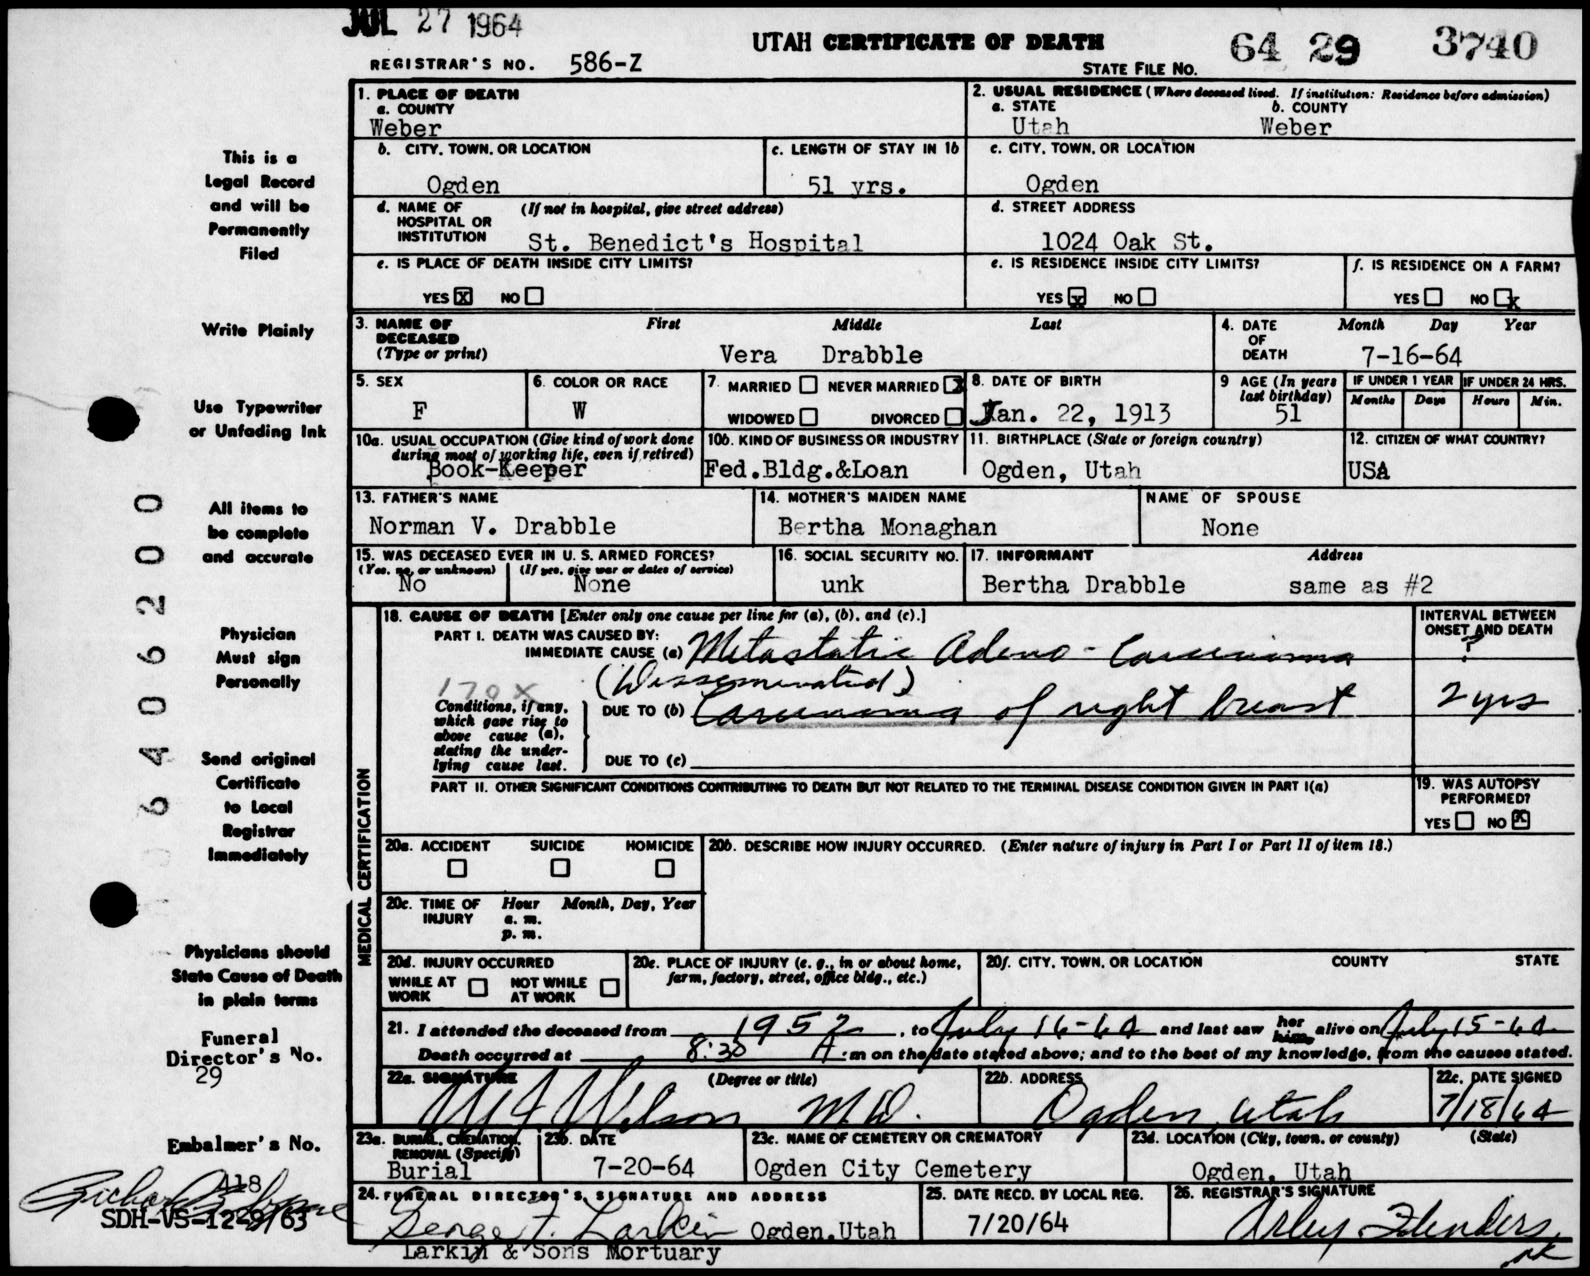 JUL 27 1964
UTAH CERTIFICATE OF DEATH
64 29 3740
REGISTRAR'S NO. 586-Z
STATE FILE NO.
1. PLACE OF DEATH
a. COUNTY
Weber
2. USUAL RESIDENCE (Where deceased lived. If institution: Residence before admission)
a. STATE b. COUNTY
Utah Weber
b. CITY, TOWN, OR LOCATION
Ogden
c. LENGTH OF STAY IN 1b
51 yrs.
c. CITY, TOWN, OR LOCATION
Ogden
d. NAME OF HOSPITAL OR INSTITUTION (If not in hospital, give street address)
St. Benedict's Hospital
d. STREET ADDRESS
1024 Oak St.
e. IS PLACE OF DEATH INSIDE CITY LIMITS?
YES X NO
e. IS RESIDENCE INSIDE CITY LIMITS?
YES X NO
f. IS RESIDENCE ON A FARM?
YES NO X
3. NAME OF DECEASED (Type or print)
First Middle Last
Vera Drabble
4. DATE OF DEATH
Month Day Year
7-16-64
5. SEX
F
6. COLOR OR RACE
W
7. MARRIED NEVER MARRIED X
WIDOWED DIVORCED
8. DATE OF BIRTH
Jan. 22, 1913
9 AGE (In years last birthday)
51
IF UNDER 1 YEAR IF UNDER 24 HRS.
Months Days Hours Min.
10a. USUAL OCCUPATION (Give kind of work done during most of working life, even if retired)
Book-Keeper
10b. KIND OF BUSINESS OR INDUSTRY
Fed.Bldg.&Loan
11. BIRTHPLACE (State or foreign country)
Ogden, Utah
12. CITIZEN OF WHAT COUNTRY?
USA
13. FATHER'S NAME
Norman V. Drabble
14. MOTHER'S MAIDEN NAME
Bertha Monaghan
NAME OF SPOUSE
None
15. WAS DECEASED EVER IN U. S. ARMED FORCES?
(Yes, no, or unknown) (If yes, give war or dates of service)
No None
16. SOCIAL SECURITY NO.
unk
17. INFORMANT Address
Bertha Drabble same as #2
18. CAUSE OF DEATH [Enter only one cause per line for (a), (b), and (c).]
INTERVAL BETWEEN ONSET AND DEATH
PART I. DEATH WAS CAUSED BY:
IMMEDIATE CAUSE (a) Metastatic Adeno-Carcinoma ?
(Disseminated)
170X
Conditions, if any, which gave rise to above cause (a), stating the underlying cause last.
DUE TO (b) Carcinoma of right breast 2 yrs
DUE TO (c)
PART II. OTHER SIGNIFICANT CONDITIONS CONTRIBUTING TO DEATH BUT NOT RELATED TO THE TERMINAL DISEASE CONDITION GIVEN IN PART I(a)
19. WAS AUTOPSY PERFORMED?
YES NO X
MEDICAL CERTIFICATION
20a. ACCIDENT SUICIDE HOMICIDE
20b. DESCRIBE HOW INJURY OCCURRED. (Enter nature of injury in Part I or Part II of item 18.)
20c. TIME OF INJURY Hour Month, Day, Year
a. m.
p. m.
20d. INJURY OCCURRED
WHILE AT WORK NOT WHILE AT WORK
20e. PLACE OF INJURY (e. g., in or about home, farm, factory, street, office bldg., etc.)
20f. CITY, TOWN, OR LOCATION COUNTY STATE
21. I attended the deceased from 1952, to July 16-64 and last saw her him alive on July 15-64
Death occurred at 8:30 A.m on the date stated above; and to the best of my knowledge, from the causes stated.
22a. SIGNATURE (Degree or title)
Wilson M.D.
22b. ADDRESS
Ogden, Utah
22c. DATE SIGNED
7/18/64
23a. BURIAL, CREMATION, REMOVAL (Specify)
Burial
23b. DATE
7-20-64
23c. NAME OF CEMETERY OR CREMATORY
Ogden City Cemetery
23d. LOCATION (City, town, or county) (State)
Ogden, Utah
24. FUNERAL DIRECTOR'S SIGNATURE AND ADDRESS
George F. Larkin Ogden,Utah
Larkin & Sons Mortuary
25. DATE RECD. BY LOCAL REG.
7/20/64
26. REGISTRAR'S SIGNATURE
Arley Flenders
This is a
Legal Record
and will be
Permanently
Filed
Write Plainly
Use Typewriter
or Unfading Ink
All items to
be complete
and accurate
Physician
Must sign
Personally
Send original
Certificate
to Local
Registrar
Immediately
Physicians should
State Cause of Death
in plain terms
Funeral
Director's No.
29
Embalmer's No.
418
SDH-VS-12-9/63
6406200